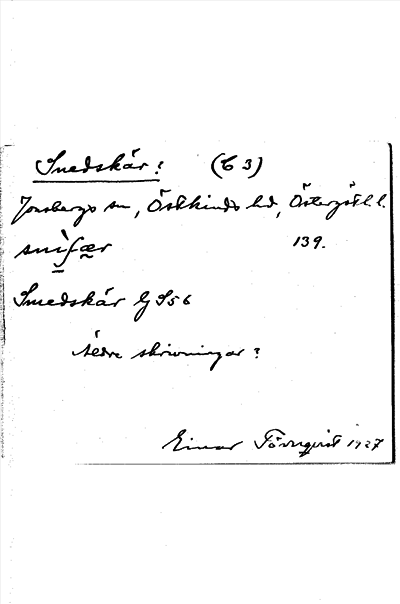 Snedskär: (C 3)
Jonsbergs sn, Östkinds hd, Östergötl. l.
139.
Smedskär Gj S56
Äldre skrivningar?
Einar Törnqvist 1927